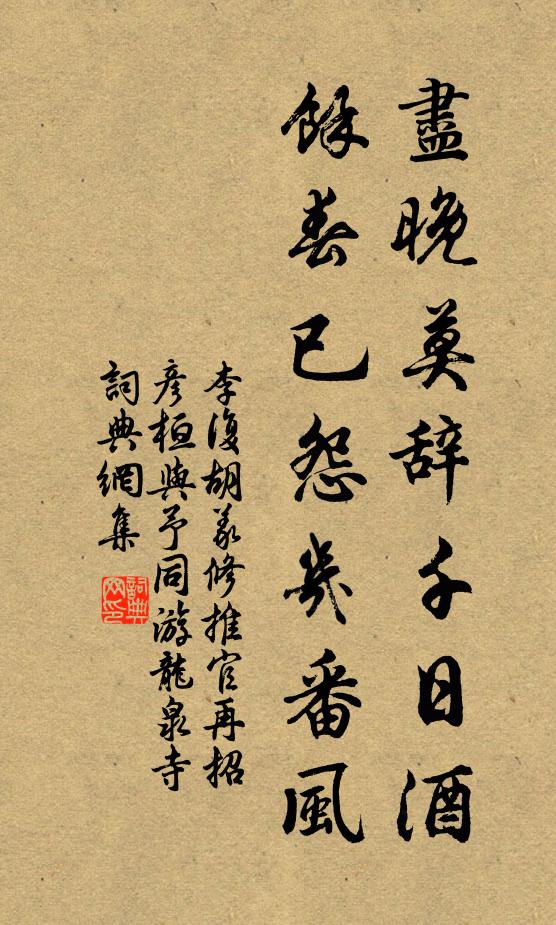 盡晚莫辞千日酒
餘春已怨幾番風
李復胡義修推官再招
彦桓與予同游龍泉寺
詞典網集
詞典
网印